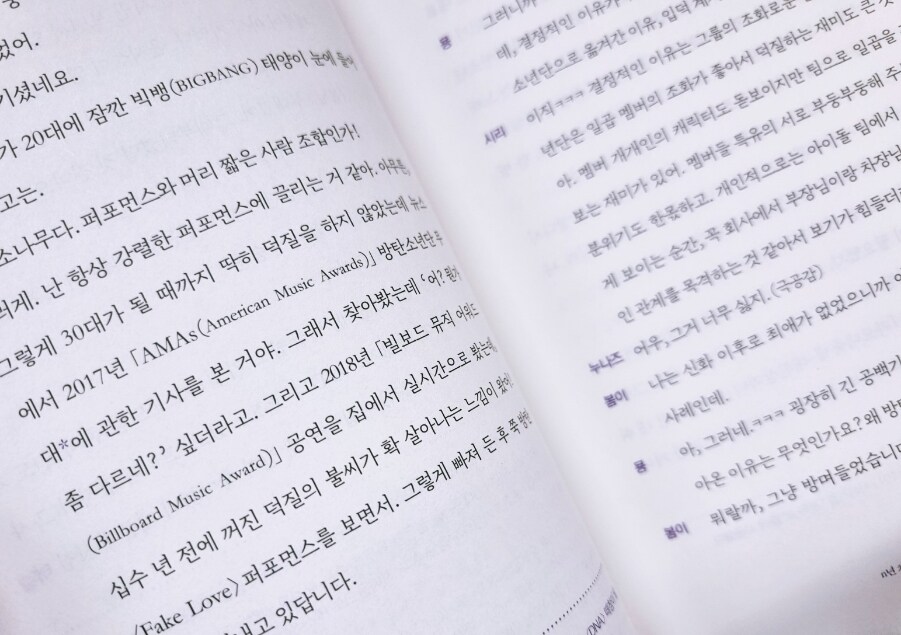 었어.
기셨네요.
가 20대에 잠깐 빅뱅(BIGBANG) 태양이 눈에 들어
고는.
소나무다. 퍼포먼스와 머리 짧은 사람 조합인가!
러게. 난 항상 강렬한 퍼포먼스에 끌리는 거 같아. 아무튼,
그렇게 30대가 될 때까지 딱히 덕질을 하지 않았는데 뉴스
에서 2017년 「AMAs(American Music Awards)」 방탄소년단 무
대*에 관한 기사를 본 거야. 그래서 찾아봤는데 ‘어? 뭔가
좀 다르네?’ 싶더라고. 그리고 2018년 「빌보드 뮤직 어워드
(Billboard Music Award)」 공연을 집에서 실시간으로 봤는데,
십수 년 전에 꺼진 덕질의 불씨가 확 살아나는 느낌이 왔어.
〈Fake Love〉 퍼포먼스를 보면서. 그렇게 빠져 든 후 쭉
내고 있답니다.
그러니까
데, 결정적인 이유가
소년단으로 옮겨간 이유, 입덕 계
시리 이직ㅋㅋㅋ 결정적인 이유는 그룹의 조화로운
년단은 일곱 멤버의 조화가 좋아서 덕질하는 재미도 큰 것
아. 멤버 개개인의 캐릭터도 돋보이지만 팀으로 일곱을
보는 재미가 있어. 멤버들 특유의 서로 부둥부둥해 주
분위기도 한몫하고. 개인적으로는 아이돌 팀에서
게 보이는 순간, 꼭 회사에서 부장님이랑 차장님
인 관계를 목격하는 것 같아서 보기가 힘들더
누나즈 어우, 그거 너무 싫지. (극공감)
봄이 나는 신화 이후로 최애가 없었으니까
사례인데.
아, 그러네.ㅋㅋㅋ 굉장히 긴 공백기
아온 이유는 무엇인가요? 왜 방탄
봄이 뭐랄까, 그냥 방며들었습니다
n년